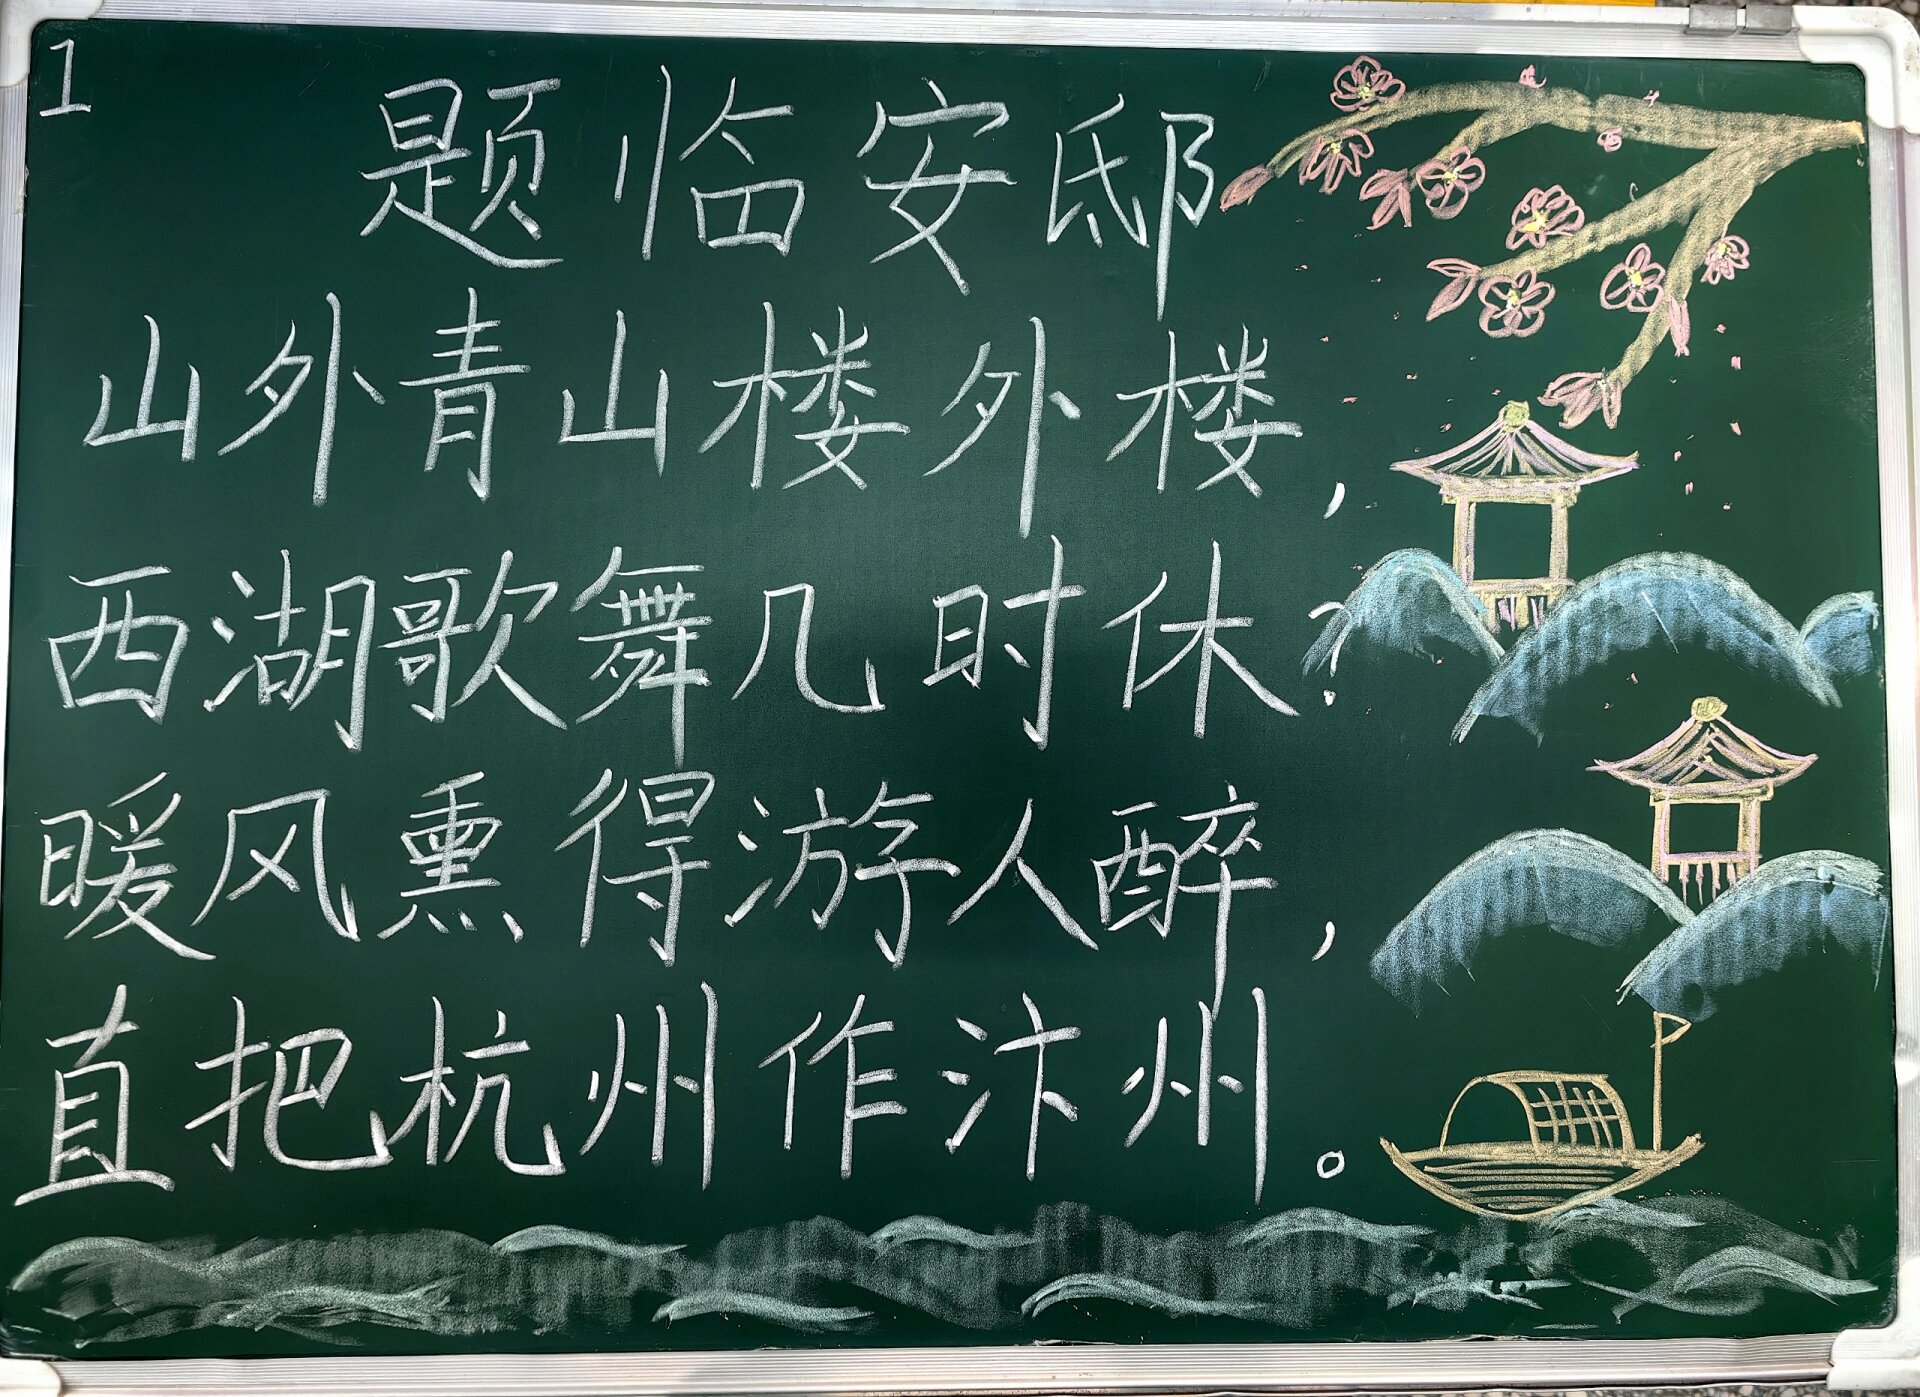 1
题临安邸
山外青山楼外楼，
西湖歌舞几时休？
暖风熏得游人醉，
直把杭州作汴州。